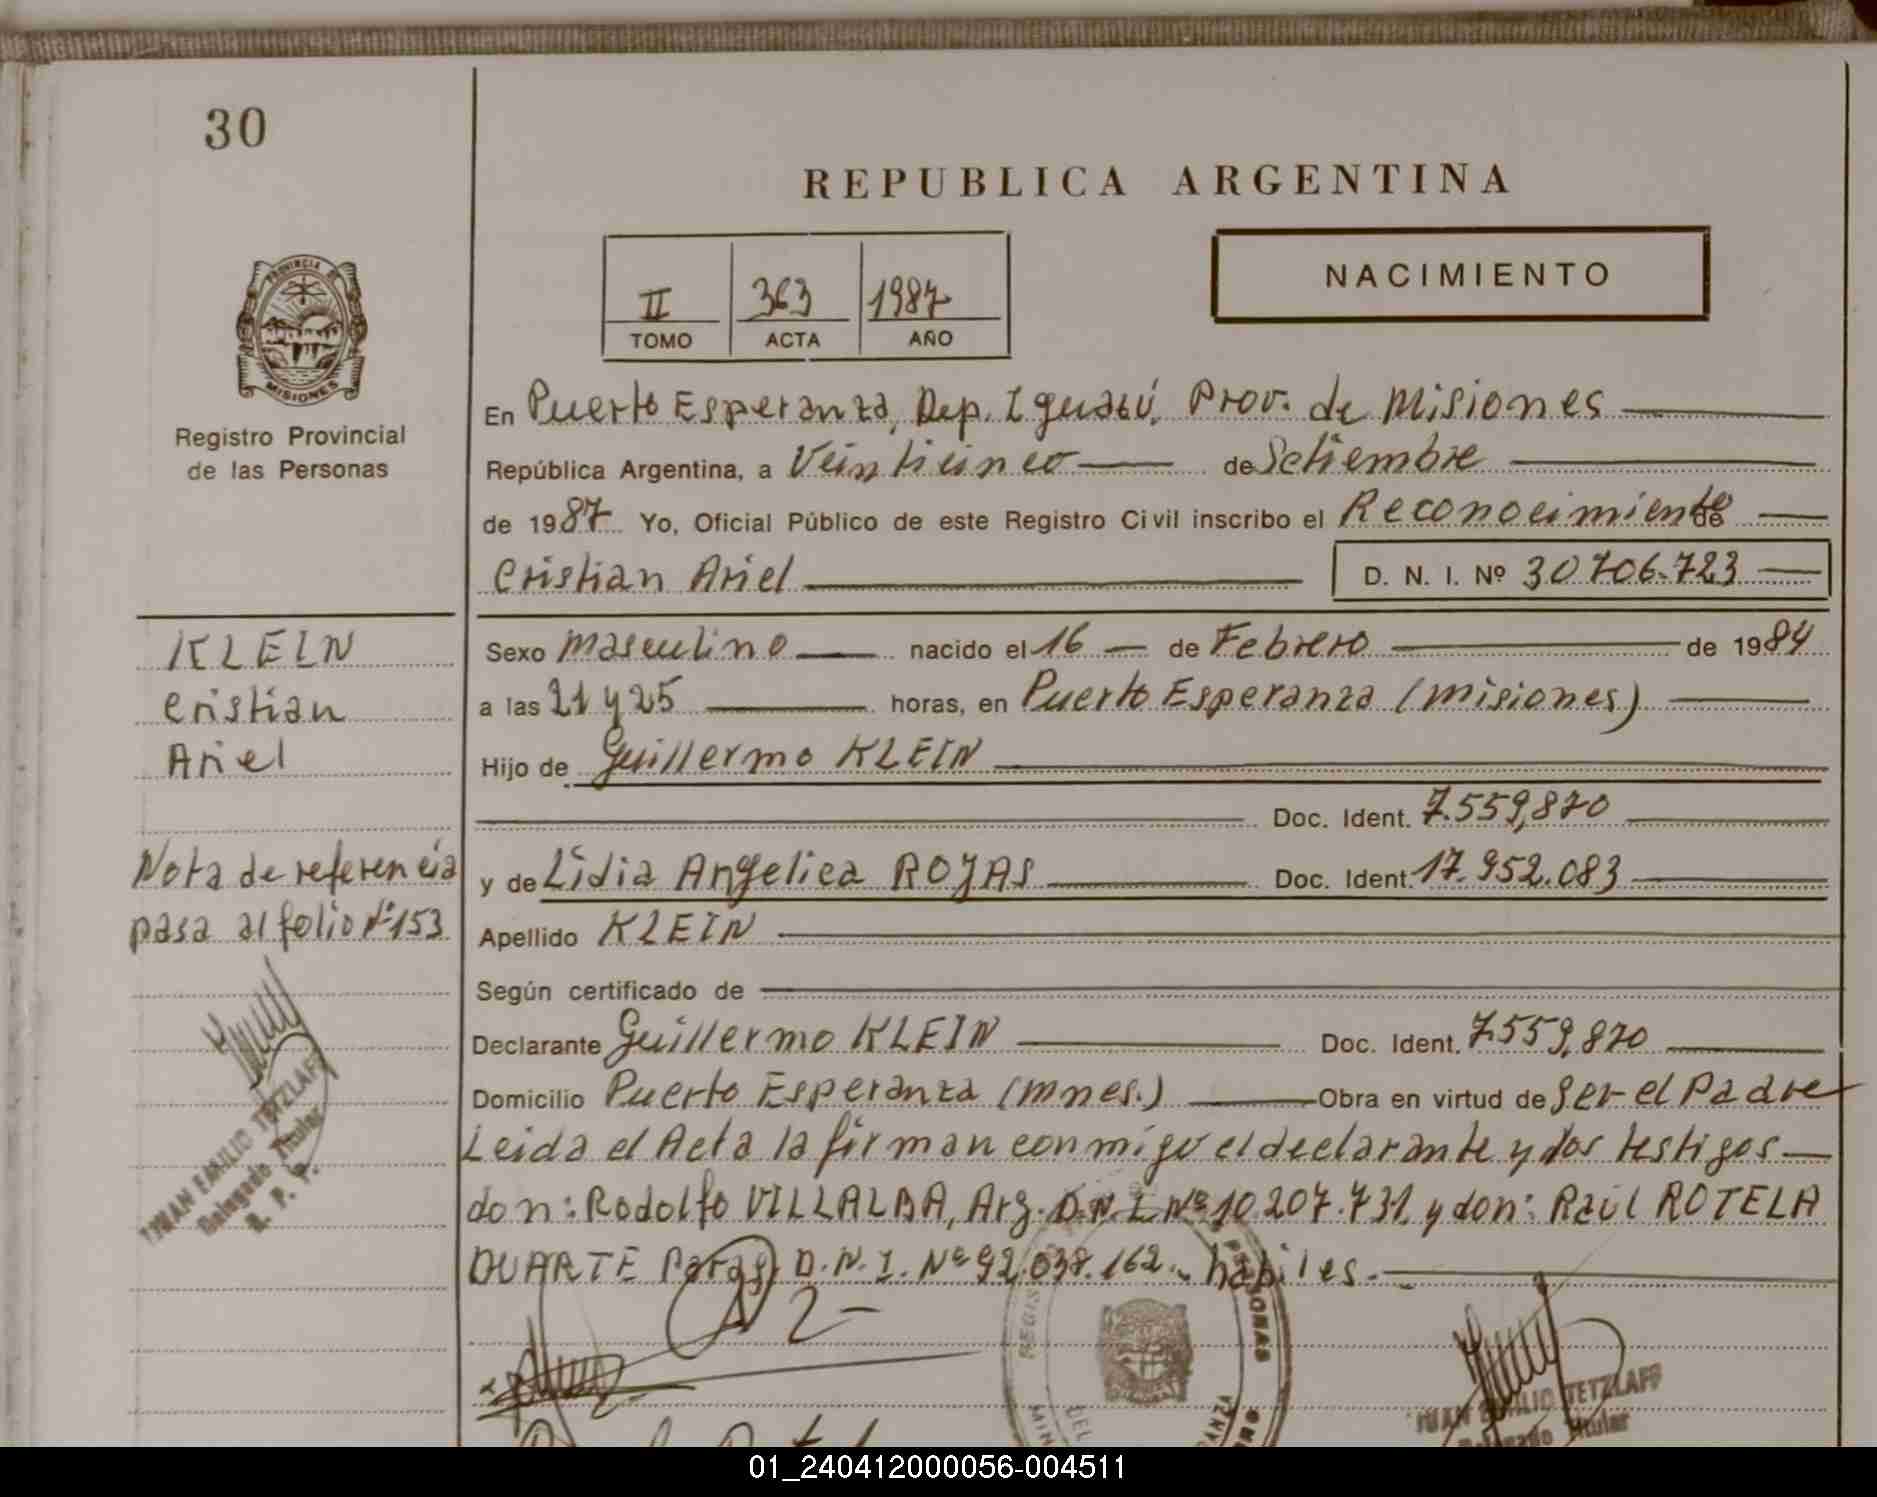 30
REPUBLICA ARGENTINA
II 363 1987
TOMO ACTA AÑO
NACIMIENTO
PROVINCIA DE
MISIONES
Registro Provincial
de las Personas
En Puerto Esperanza, Dep. Iguazú, Prov. de Misiones
República Argentina, a Veinticinco de Setiembre
de 1987 Yo, Oficial Público de este Registro Civil inscribo el Reconocimiento de
Cristian Ariel D. N. I. Nº 30706.723
KLEIN
Cristian
Ariel
Sexo Masculino nacido el 16 de Febrero de 1984
a las 21 y 25 horas, en Puerto Esperanza (Misiones)
Hijo de Guillermo KLEIN
Doc. Ident. 7.559,870
Nota de referencia
pasa al folio Nº 153
y de Lidia Angelica ROJAS Doc. Ident. 17.952.083
Apellido KLEIN
Según certificado de
Declarante Guillermo KLEIN Doc. Ident. 7.559,870
Domicilio Puerto Esperanza (Mnes.) Obra en virtud de Ser el Padre
Leida el Acta la firman conmigo el declarante y dos testigos
don: Rodolfo VILLALBA, Arg. D.N.I. Nº 10.207.731 y don: Raúl ROTELA
DUARTE Parag. D.N.I. Nº 92.038.162.- habiles.-
JUAN EMILIO TETZLAFF
Delegado Titular
R. P. P.
JUAN EMILIO TETZLAFF
Delegado Titular
01_240412000056-004511